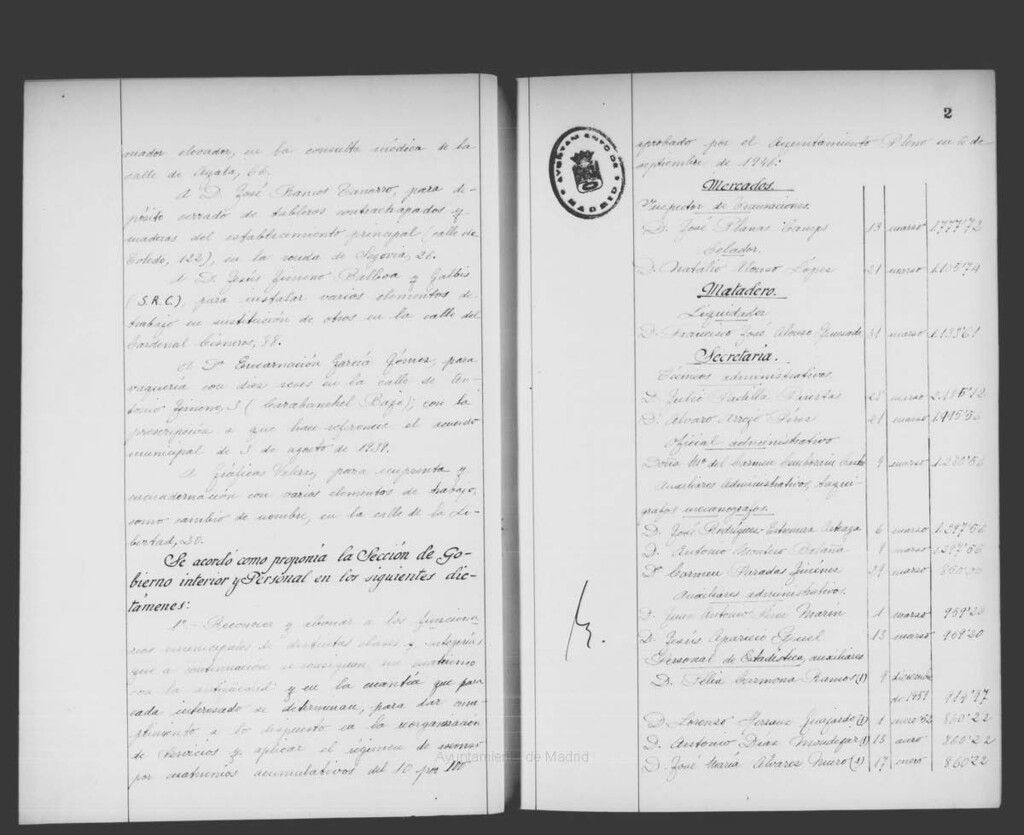 mador elevador, en la consulta médica de la
calle de Ayala, 66.
A D. José Ramos Navarro, para de-
pósito cerrado de tableros contrachapados y
maderas del establecimiento principal (calle de
Toledo, 122), en la ronda de Segovia, 26.
A D. Jesús Jimeno Balboa y Galbis
(S.R.C.), para instalar varios elementos de
trabajo en sustitución de otros en la calle del
Cardenal Cisneros, 88.
A Dª Encarnación García Gómez, para
vaquería con diez reses en la calle de An-
tonio Jimeno, 3 (Carabanchel Bajo); con la
prescripción a que hace referencia el acuerdo
municipal de 3 de agosto de 1939.
A Gráficas Valera, para imprenta y
encuadernación con varios elementos de trabajo,
como cambio de nombre, en la calle de la Li-
bertad, 20.
Se acordó como proponía la Sección de Go-
bierno interior y Personal en los siguientes dic-
támenes:
1º - Reconocer y abonar a los funciona-
rios municipales de distintas clases y categorías
que a continuación se consignan, un cuatrienio
con la antigüedad y en la cuantía que para
cada interesado se determinan, para dar cum-
plimiento a lo dispuesto en la reorganización
de Servicios y aplicar el régimen de ascenso
por cuatrienios acumulativos del 10 por 100
Ayuntamiento de Madrid
2
AYUNTAMIENTO DE MADRID
aprobado por el Ayuntamiento Pleno en 6 de
septiembre de 1946:
Mercados.
Inspector de Transacciones
D. José Planas Camps 13 marzo 1.777'72
Celador.
D. Natalio Alonso López 21 marzo
Matadero.
Liquidador
D. Francisco José Alonso Quesada 31 marzo
Secretaría.
Técnicos administrativos.
D. Julio Padilla Puertas marzo
D. Alvaro Arrojo Pérez 21 marzo 1.915'56
Oficial administrativo
Doña Mª del Carmen 9 marzo 1.280'56
Auxiliares Administrativos, taqui-
grafos mecanógrafos.
D. José Rodríguez-Extremera Arteaga 6 marzo 1.297'56
D. Antonio Montero Bolaño 9 marzo 1.297'56
Dª Carmen Paradas Jiménez 29 marzo
Auxiliares administrativos.
D. Juan Antonio Marín 1 marzo 959'20
D. Jesús Aparicio 13 marzo 959'20
Personal de Estadística, auxiliares
D. Félix Carmona Ramos (1) 9 diciembre
de 1951 914'97
D. Lorenzo Guajardo (1) 1 enero 52 860'22
D. Antonio Díaz Mondejar (1) 13 enero 860'22
D. José María Alvarez Muro (1) 17 enero 860'22